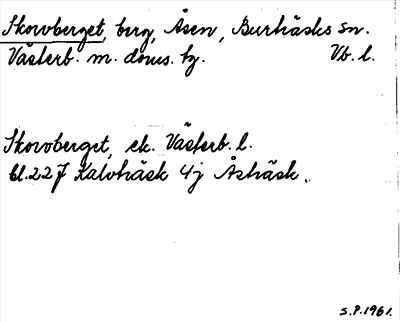 Skorvberget, berg, Åsen, Burträsks sn.
Västerb. m. doms. tg. Vb. l.
Skorvberget, ek. Västerb. l.
bl. 22 J Kalvträsk 4j Åsträsk.
S.P. 1961.